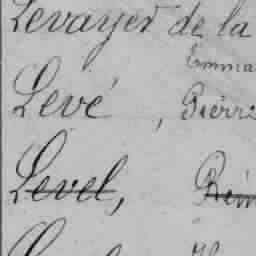 Levayer de la
Emma
Levé, Pierre
Level,